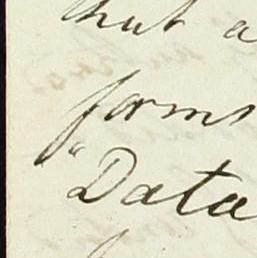 that a
forms
"Data